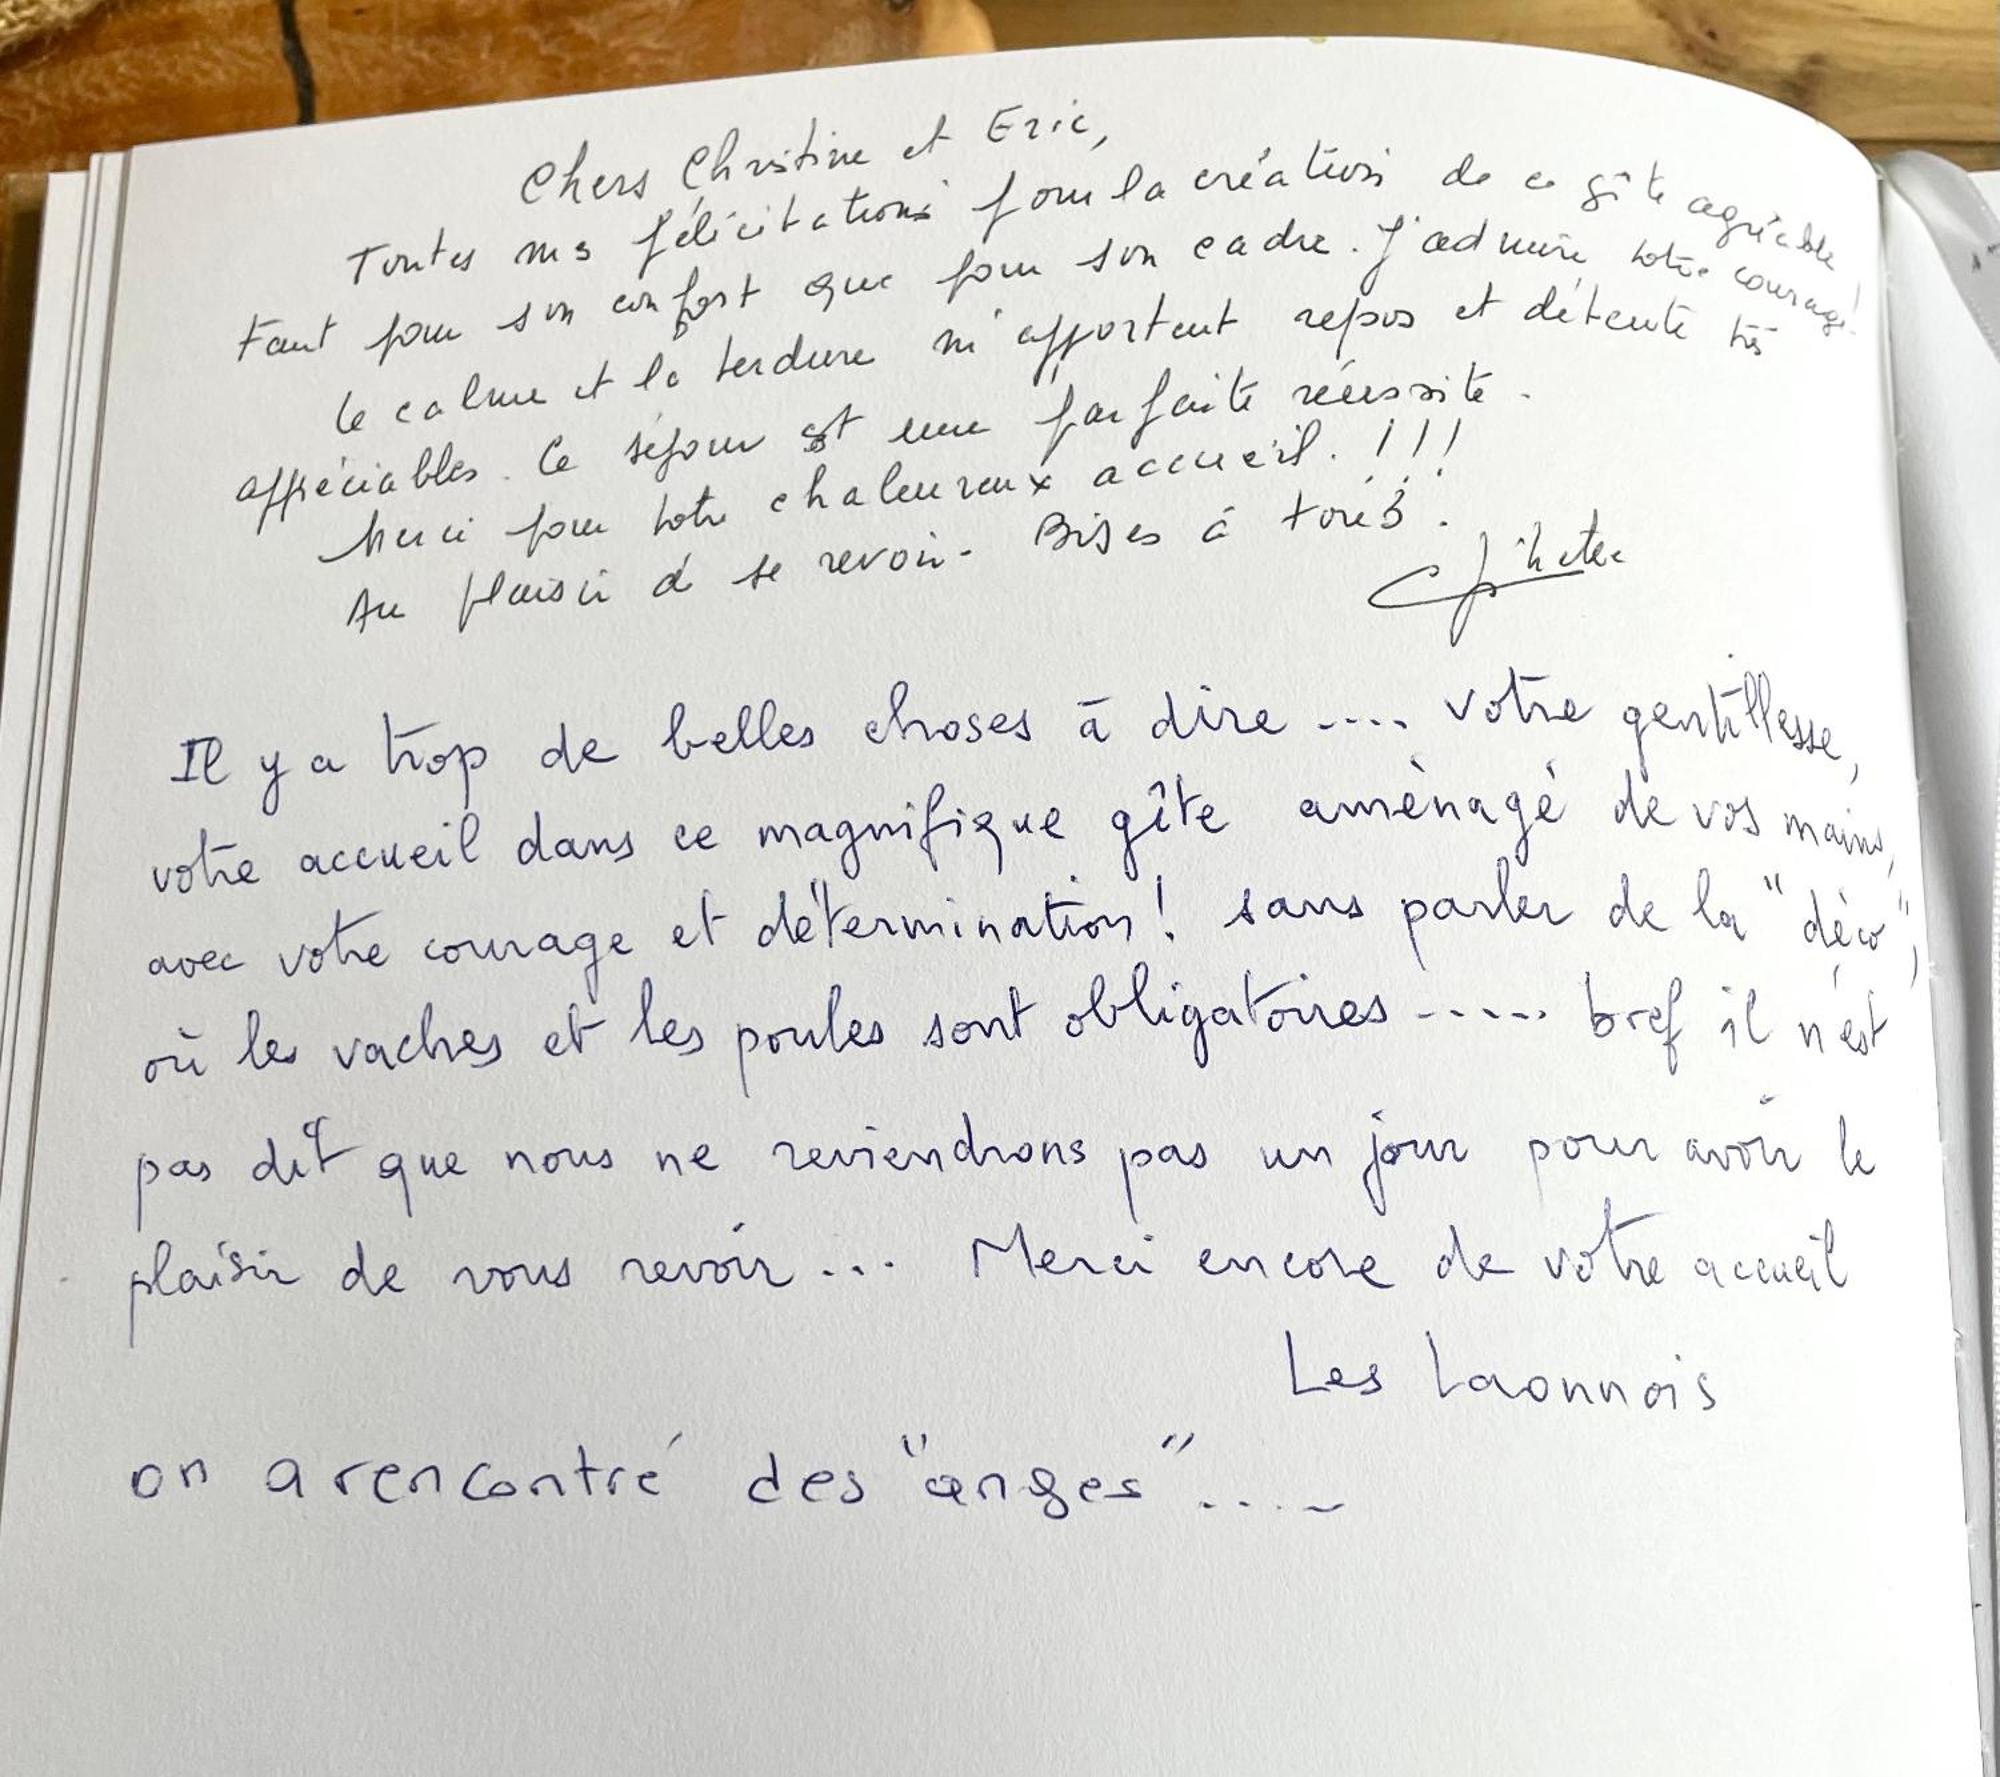 Chers Christine et Eric,
Toutes mes félicitations pour la création de ce gîte agréable
tant pour son confort que pour son cadre. J'admire votre courage!
le calme et la verdure m'apportent repos et détente très
appréciables. Ce séjour est une parfaite réussite.
Merci pour votre chaleureux accueil. !!!
Au plaisir d se revoir. Bises à tous.
Il y a trop de belles choses à dire .... votre gentillesse,
votre accueil dans ce magnifique gîte aménagé de vos mains,
avec votre courage et détermination! sans parler de la "déco",
où les vaches et les poules sont obligatoires ..... bref il n'est
pas dit que nous ne reviendrons pas un jour pour avoir le
plaisir de vous revoir ... Merci encore de votre accueil
Les Laonnois
on a rencontré des "anges" ....